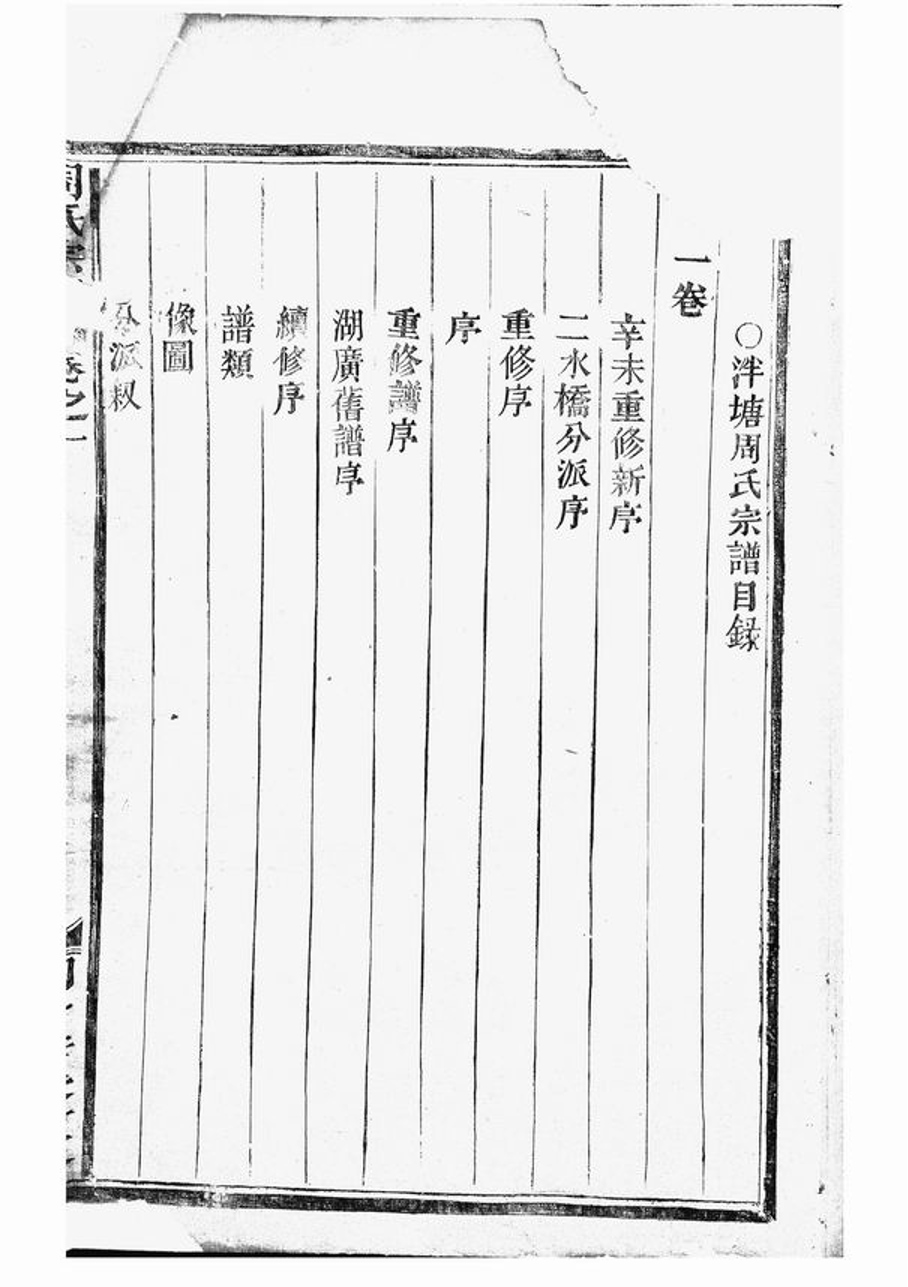 ○泮塘周氏宗譜目録
一卷
辛未重修新序
二水橋分派序
重修序
序
重修譜序
湖廣舊譜序
續修序
譜類
像圖
分派叙
周氏宗
卷之一